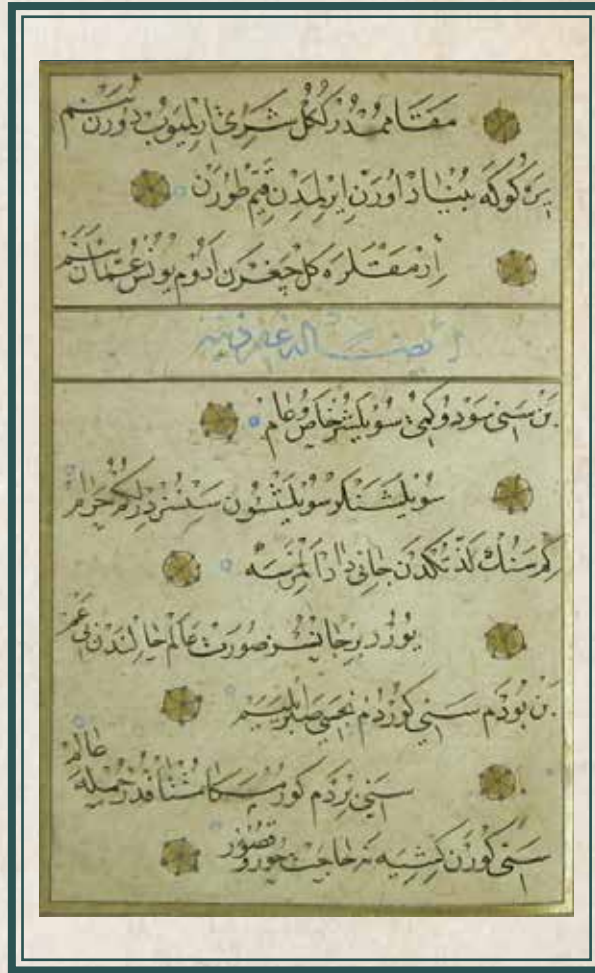 مقاممدر ككل شرى ارلميوب دورن بنم
يره كوكه بنياد اورن ايرلمدن قيم طورن
كل چغرن ادوم يونس عمان بنم
ايضا له غفر ذنبه
بن سنى سودوكمى سويلشر خاص و عام
سويلشنلر سويلشسون سنسز درلكم حرام
كم سنك لذتكدن جانى
يورر بر جانسز صورت عالم حالندن بى غم
بن بوذم سنى كوردم نجسى صبر ايليم
سنى بر دم كورميكا مشتاقدر جمله عالم
سنى كورن كشيه نه حاجت حور و قصور